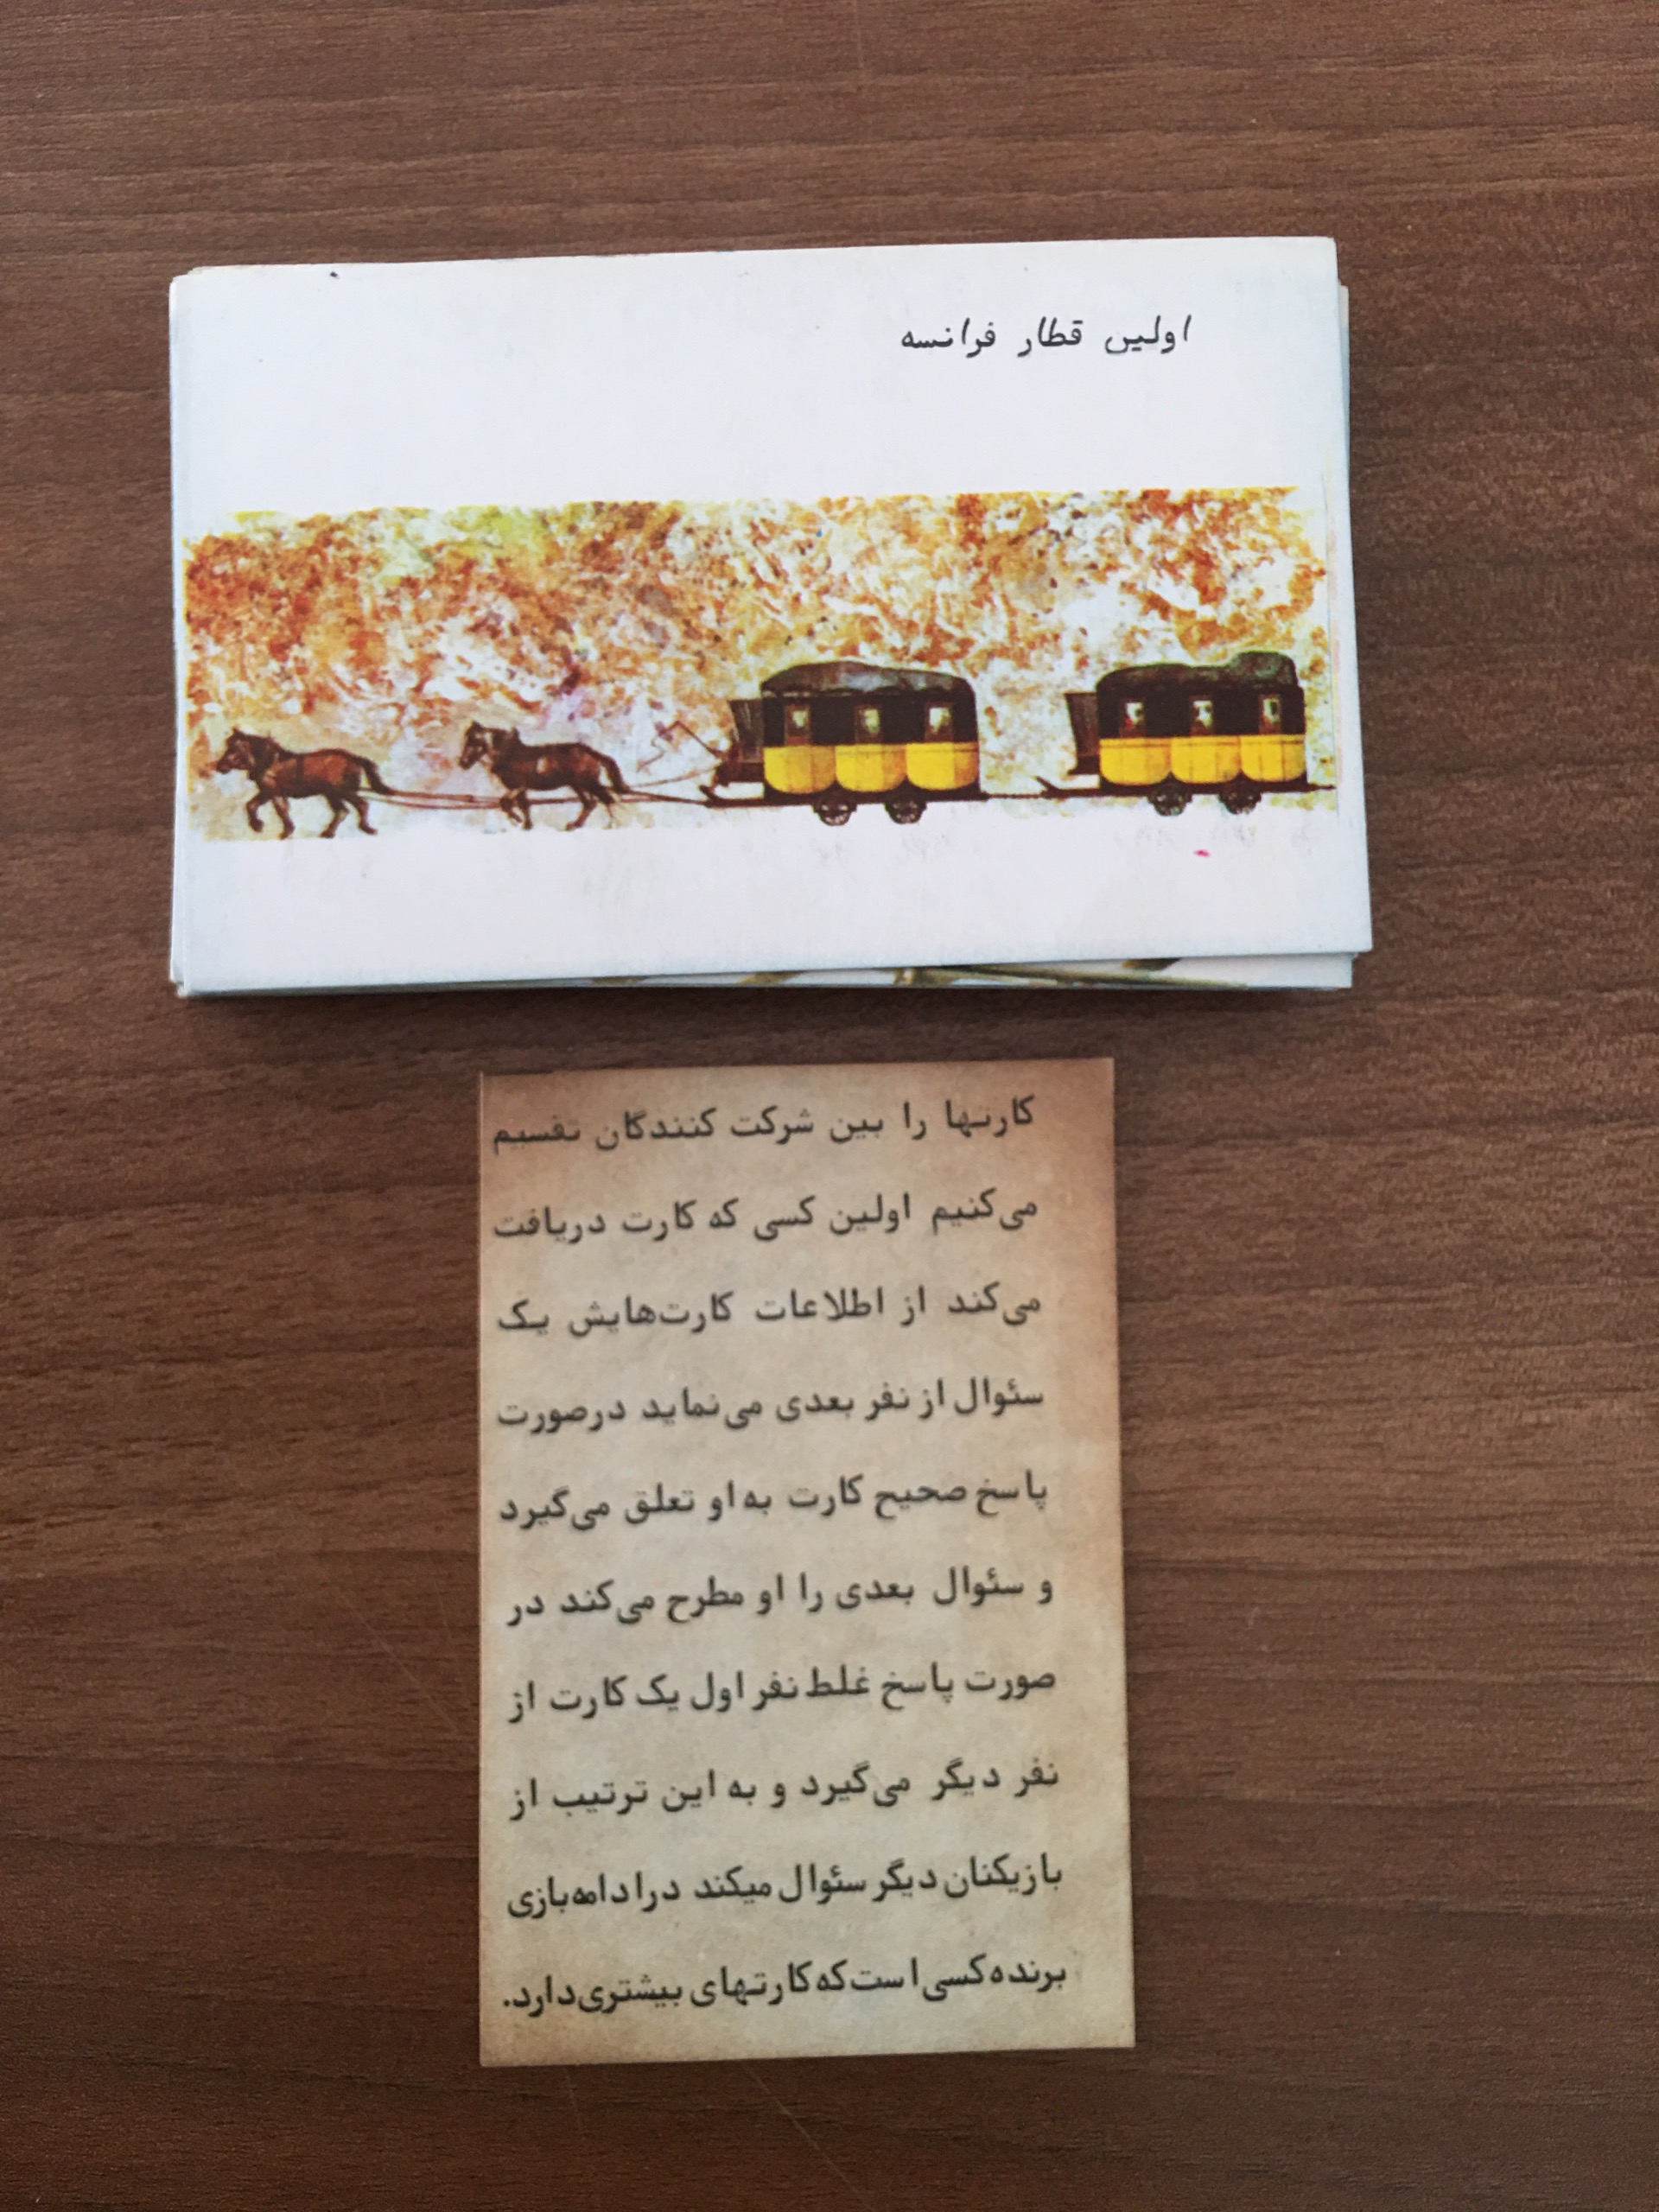 اولین قطار فرانسه
کارتها را بین شرکت کنندگان تقسیم
می‌کنیم اولین کسی که کارت دریافت
می‌کند از اطلاعات کارت‌هایش یک
سئوال از نفر بعدی می‌نماید درصورت
پاسخ صحیح کارت به او تعلق می‌گیرد
و سئوال بعدی را او مطرح می‌کند در
صورت پاسخ غلط نفر اول یک کارت از
نفر دیگر می‌گیرد و به این ترتیب از
بازیکنان دیگر سئوال میکند درادامه‌بازی
برنده کسی است که کارتهای بیشتری دارد.